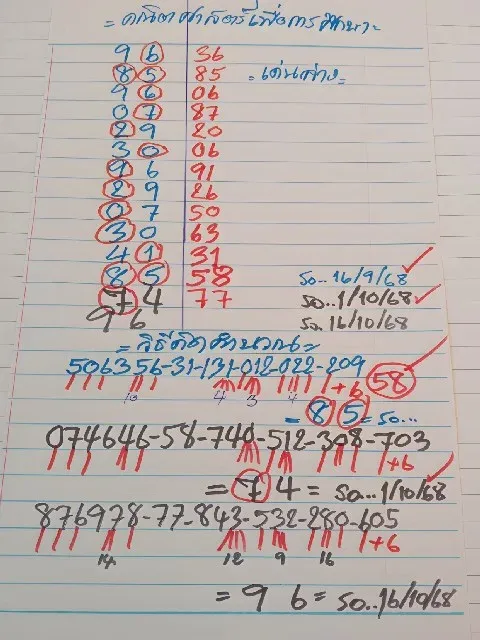 = คณิตศาสตร์เพื่อการศึกษา =
9 6 36
8 5 85 = เด่นล่าง =
9 6 06
0 7 87
2 9 20
3 0 06
9 6 91
2 9 26
0 7 50
3 0 63
4 1 31
8 5 58 รอ.. 16/9/68
7 4 77 รอ.. 1/10/68
9 6 รอ. 16/10/68
= วิธีคิดคำนวณ =
506356-31-131-012-022-209
10 4 3 4 +6 58
= 8 5 = รอ...
074646-58-740-512-308-703
+6
= 7 4 = รอ.. 1/10/68
876978-77-843-532-280-605
14 12 9 16 +6
= 9 6 = รอ.. 16/10/68